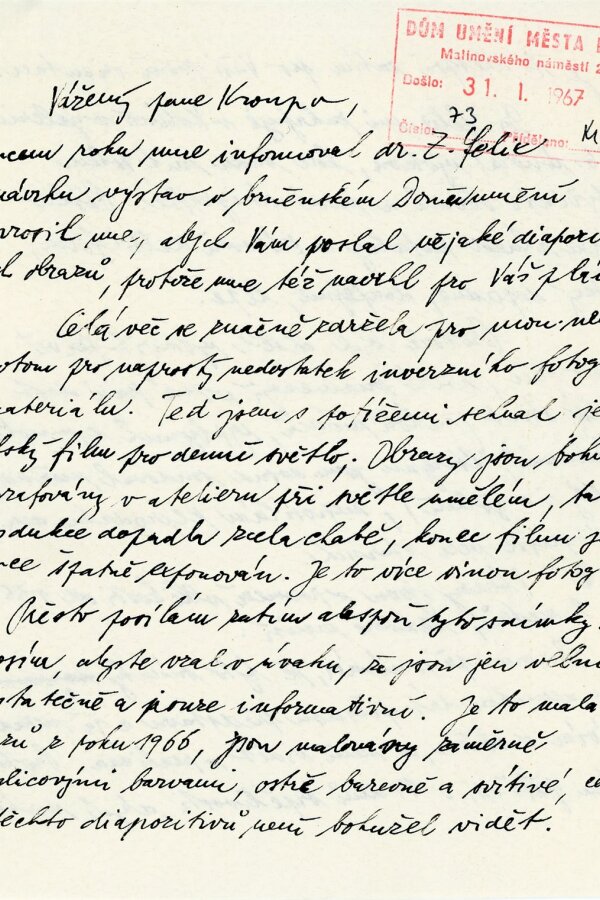 DŮM UMĚNÍ MĚSTA
Malinovského náměstí 2
Došlo: 31. 1. 1967
Číslo: 73 Přiděleno:
Vážený pane Kroupo,
roku mne informoval dr. Z. Felix
návrhu výstav v brněnském Domě umění
mne, abych Vám poslal nějaké diapozi
obrazů, protože mne též navrhl pro Váš plá
Celá věc se značně zdržela pro mou ne
potom pro naprostý nedostatek inverzního fotog
materiálu. Teď jsem s potížemi sehnal je
film pro denní světlo. Obrazy jsou bohu
v atelieru při světle umělém, ta
dukce dopadla zcela chabě, konec filmu j
ce špatně exponován. Je to více vinou fotog
Přesto posílám zatím alespoň tyto snímky.
osím abyste vzal v úvahu, že jsou jen velmi
statečné a pouze informativní. Je to malá
zů z roku 1966, jsou malovány záměrně
licovými barvami, ostře barevné a svítivé, co
těchto diapozitivů není bohužel vidět.